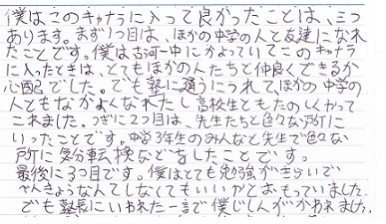 僕はこのキャナラに入って良かったことは、三つ
あります。まず1つ目は、ほかの中学の人と友達になれ
たことです。僕は古河一中にかよっていてこのキャナラ
に入ったときは、とてもほかの人たちと仲良くできるか
心配でした。でも塾に通うにつれて、ほかの中学の
人ともなかよくなれたし高校生ともたのしくやって
これました。つぎに2つ目は、先生たちと色々な所に
いったことです。中学3年生のみんなと先生で色々な
所に気分転検などをしたことです。
最後に3つ目です。僕はとても勉強がきらいで
べんきょうなんてしなくてもいいやとおもっていました。
でも塾長にいわれた一言で僕じしんがかわれました。